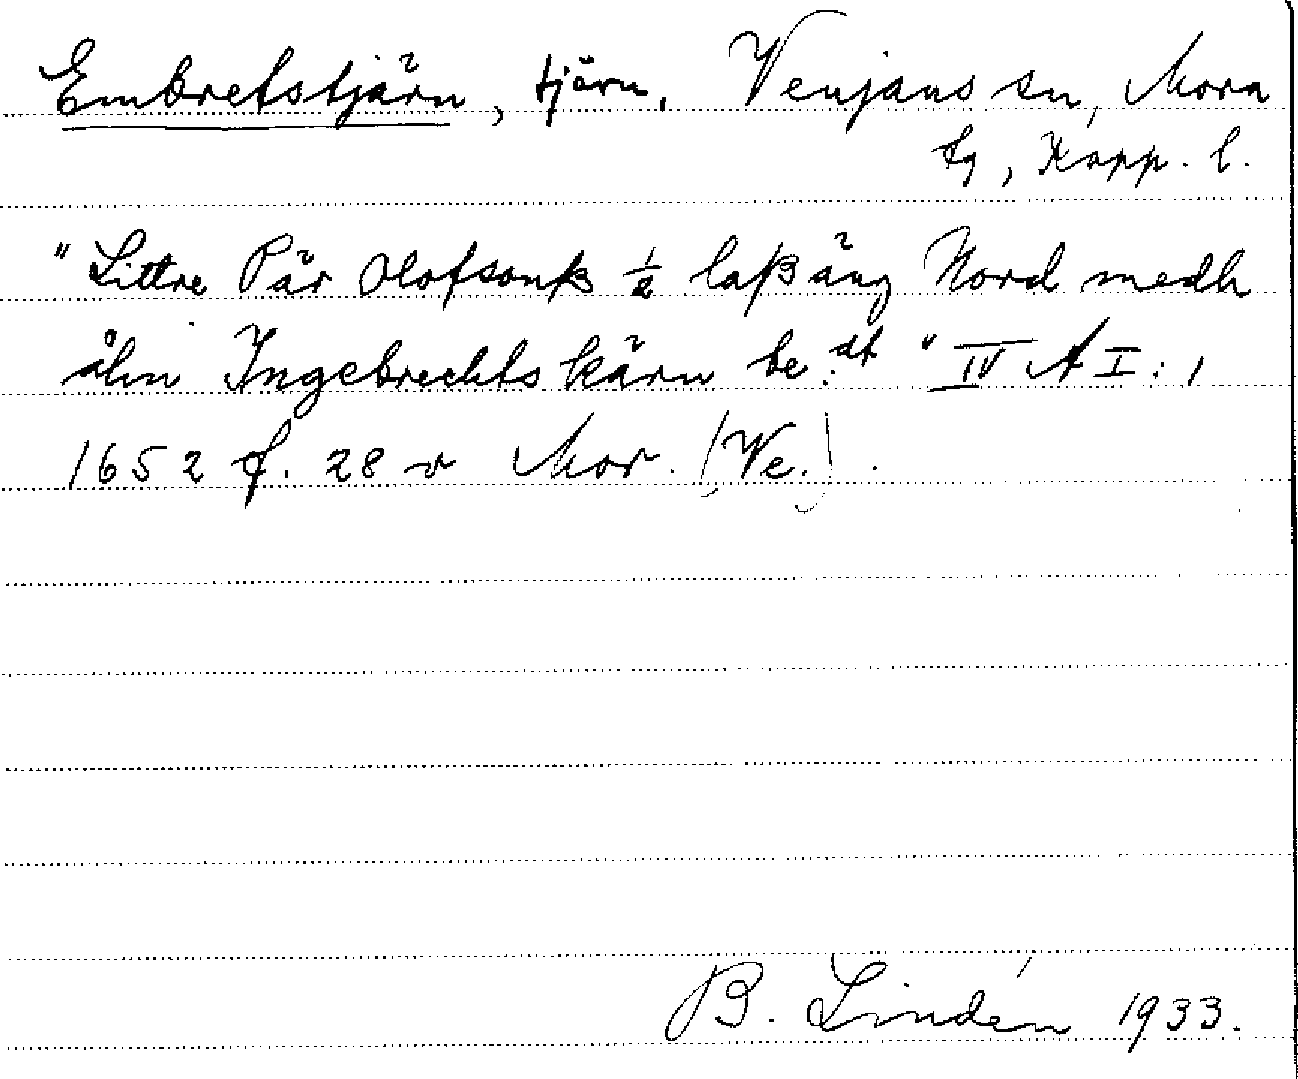 Embretstjärn, tjärn, Venjans sn, Mora
tg, Kopp. l.
"Littre Pär Olofsonß ½ laß äng Nord medh
åhn Ingebrechts kärn be:dt" IV A I:1
1652 f. 28 v Mor. (Ve.).
B. Lindén 1933.